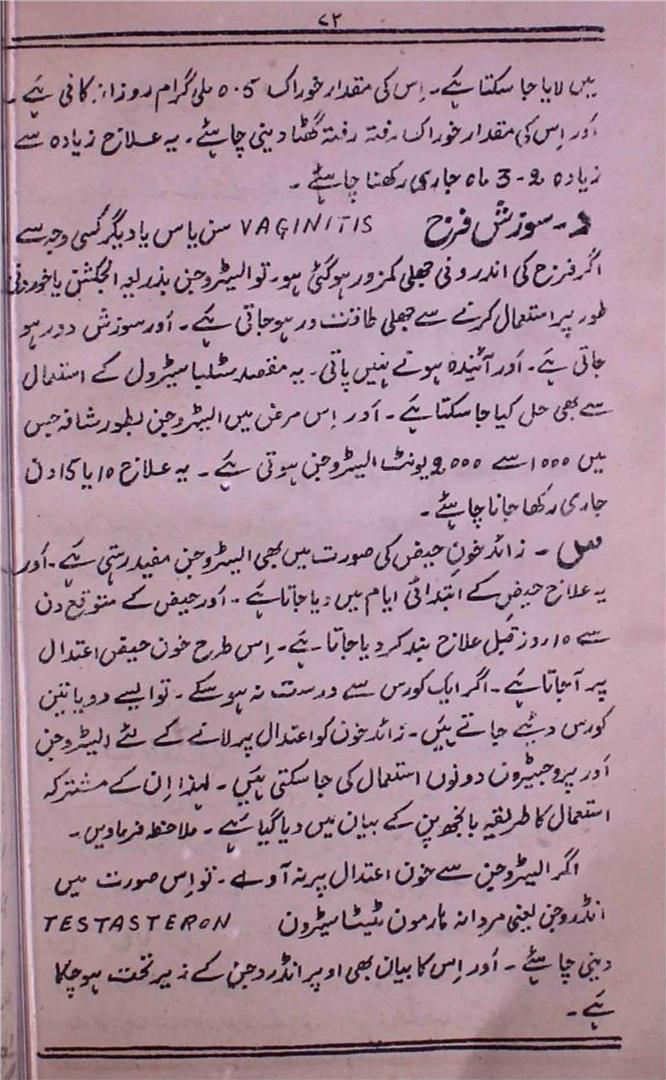 ۷۲
میں لایا جا سکتا ہے۔ اِس کی مقدار خوراک 0.5 ملی گرام روزانہ کافی ہے۔
اَور اِس کی مقدار خوراک رفتہ رفتہ گھٹا دینی چاہئے۔ یہ علاج زیادہ سے
زیادہ 2-3 ماہ جاری رکھنا چاہئے۔
د۔ سوزش فرج VAGINITIS سن یاس یا دیگر کسی وجہ سے
اگر فرج کی اندرونی جھلی کمزور ہو گئی ہو۔ تو ایسٹروجن بذریعہ انجکشن یا خوردنی
طور پر استعمال کرنے سے جھلی طاقت ور ہو جاتی ہے۔ اَور سوزش دور ہو
جاتی ہے۔ اَور آئندہ ہونے نہیں پاتی۔ یہ مقصد سٹلباسیٹرول کے استعمال
سے بھی حل کیا جا سکتا ہے۔ اَور اِس مرض میں ایسٹروجن بطور شافہ جس
میں 1000 سے 2000 یونٹ ایسٹروجن ہوتی ہے۔ یہ علاج 10 یا 15 دن
جاری رکھا جانا چاہئے۔
س۔ زائد خونِ حیض کی صورت میں بھی ایسٹروجن مفید رہتی ہے۔ اَور
یہ علاج حیض کے ابتدائی ایام میں دیا جاتا ہے۔ اَور حیض کے متوقع دن
سے 10 روز قبل علاج بند کر دیا جاتا ہے۔ اِس طرح خون حیض اعتدال
پر آجاتا ہے۔ اگر ایک کورس سے درست نہ ہو سکے۔ تو ایسے دو یا تین
کورس دیئے جاتے ہیں۔ زائد خون کو اعتدال پر لانے کے لئے ایسٹروجن
اَور پروجیسٹرون دونوں استعمال کی جا سکتی ہیں۔ لہٰذا اِن کے مشترکہ
استعمال کا طریقہ بانجھ پن کے بیان میں دیا گیا ہے۔ ملاحظہ فرماویں۔
اگر ایسٹروجن سے خون اعتدال پر نہ آوے۔ تو اِس صورت میں
انڈروجن یعنی مردانہ ہارمون ٹیسٹاسیٹرون TESTASTERON
دینی چاہئے۔ اَور اِس کا بیان بھی اوپر انڈروجن کے زیر تحت ہو چکا
ہے۔